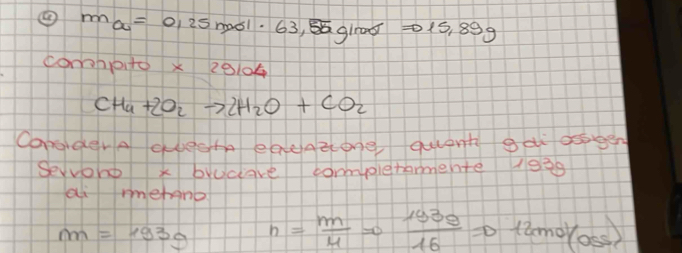 ④ m Cu = 0,25 mol · 63,55 g/mol => 15,89g
compito x 29/04
CH4 + 2O2 → 2H2O + CO2
Considera questa equazione, quanti g di ossigen
servono x bruciare completamente 193g
di metano
m = 193g n = m/M => 193g/16 => 12mol (oss)